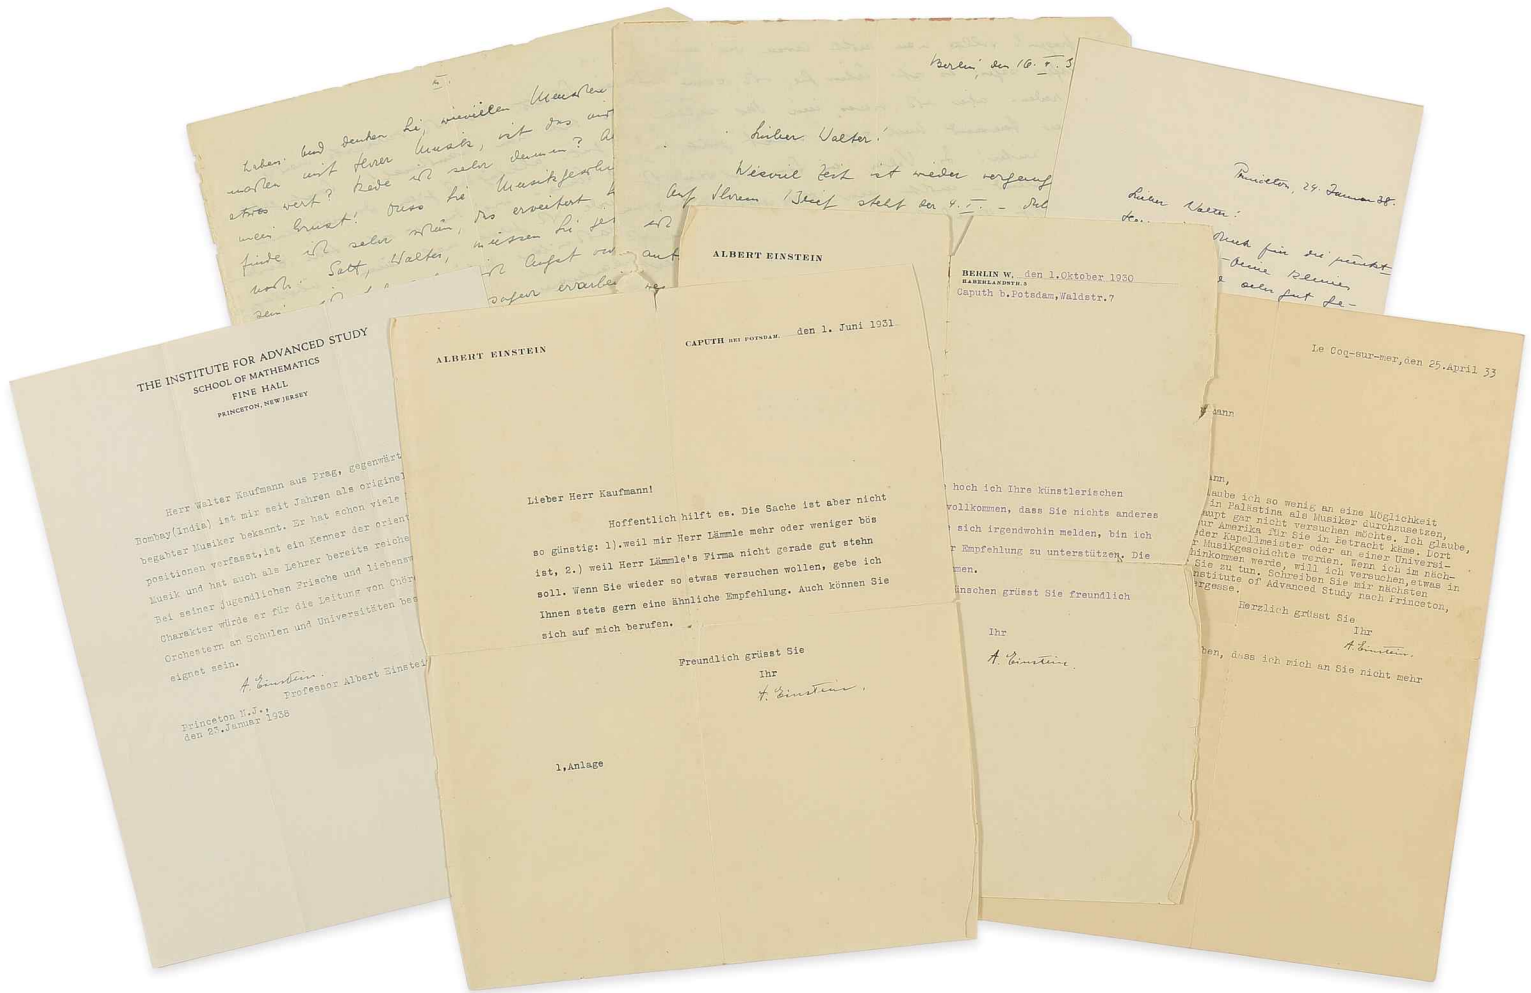 Leben. Und denken Sie, wievielen Menschen
machen mit Ihrer Musik, ist das nicht
etwas wert? Rede ich sehr dumm?
mein Ernst! Dass Sie
finde ich sehr schön, das erweitert
noch. Satt, Walter, müssen Sie
Angst
sogar
Berlin, den 16. I. 3
Lieber Walter!
Wieviel Zeit ist wieder vergang
Auf Ihrem Brief steht der 4. I. –
Princeton, 24. Januar 38.
Lieber Walter!
für die
Deine kleine
sehr gut ge-
THE INSTITUTE FOR ADVANCED STUDY
SCHOOL OF MATHEMATICS
FINE HALL
PRINCETON, NEW JERSEY
Herr Walter Kaufmann aus Prag, gegenwärt
Bombay(India) ist mir seit Jahren als originel
begabter Musiker bekannt. Er hat schon viele
positionen verfasst,ist ein Kenner der orient
Musik und hat auch als Lehrer bereits reiche
Bei seiner jugendlichen Frische und liebensw
Charakter würde er für die Leitung von Chöre
Orchestern an Schulen und Universitäten bes
eignet sein.
A. Einstein.
Professor Albert Einstei
Princeton N.J.,
den 23.Januar 1938
ALBERT EINSTEIN
CAPUTH BEI POTSDAM, den 1. Juni 1931
Lieber Herr Kaufmann!
Hoffentlich hilft es. Die Sache ist aber nicht
so günstig: 1).weil mir Herr Lämmle mehr oder weniger bös
ist, 2.) weil Herr Lämmle's Firma nicht gerade gut stehn
soll. Wenn Sie wieder so etwas versuchen wollen, gebe ich
Ihnen stets gern eine ähnliche Empfehlung. Auch können Sie
sich auf mich berufen.
Freundlich grüsst Sie
Ihr
A. Einstein.
1.Anlage
ALBERT EINSTEIN
BERLIN W, den 1.Oktober 1930
HABERLANDSTR. 5
Caputh b.Potsdam,Waldstr.7
hoch ich Ihre künstlerischen
vollkommen, dass Sie nichts anderes
sich irgendwohin melden, bin ich
r Empfehlung zu unterstützen. Die
men.
ünschen grüsst Sie freundlich
Ihr
A. Einstein.
Le Coq-sur-mer,den 25.April 33
mann
ann,
laube ich so wenig an eine Möglichkeit
in Palästina als Musiker durchzusetzen,
haupt gar nicht versuchen möchte. Ich glaube,
ur Amerika für Sie in Betracht käme. Dort
eder Kapellmeister oder an einer Universi-
r Musikgeschichte werden. Wenn ich im näch-
hinkommen werde, will ich versuchen,etwas in
Sie zu tun. Schreiben Sie mir nächsten
nstitute of Advanced Study nach Princeton,
ergesse.
Herzlich grüsst Sie
Ihr
A. Einstein.
ben, dass ich mich an Sie nicht mehr